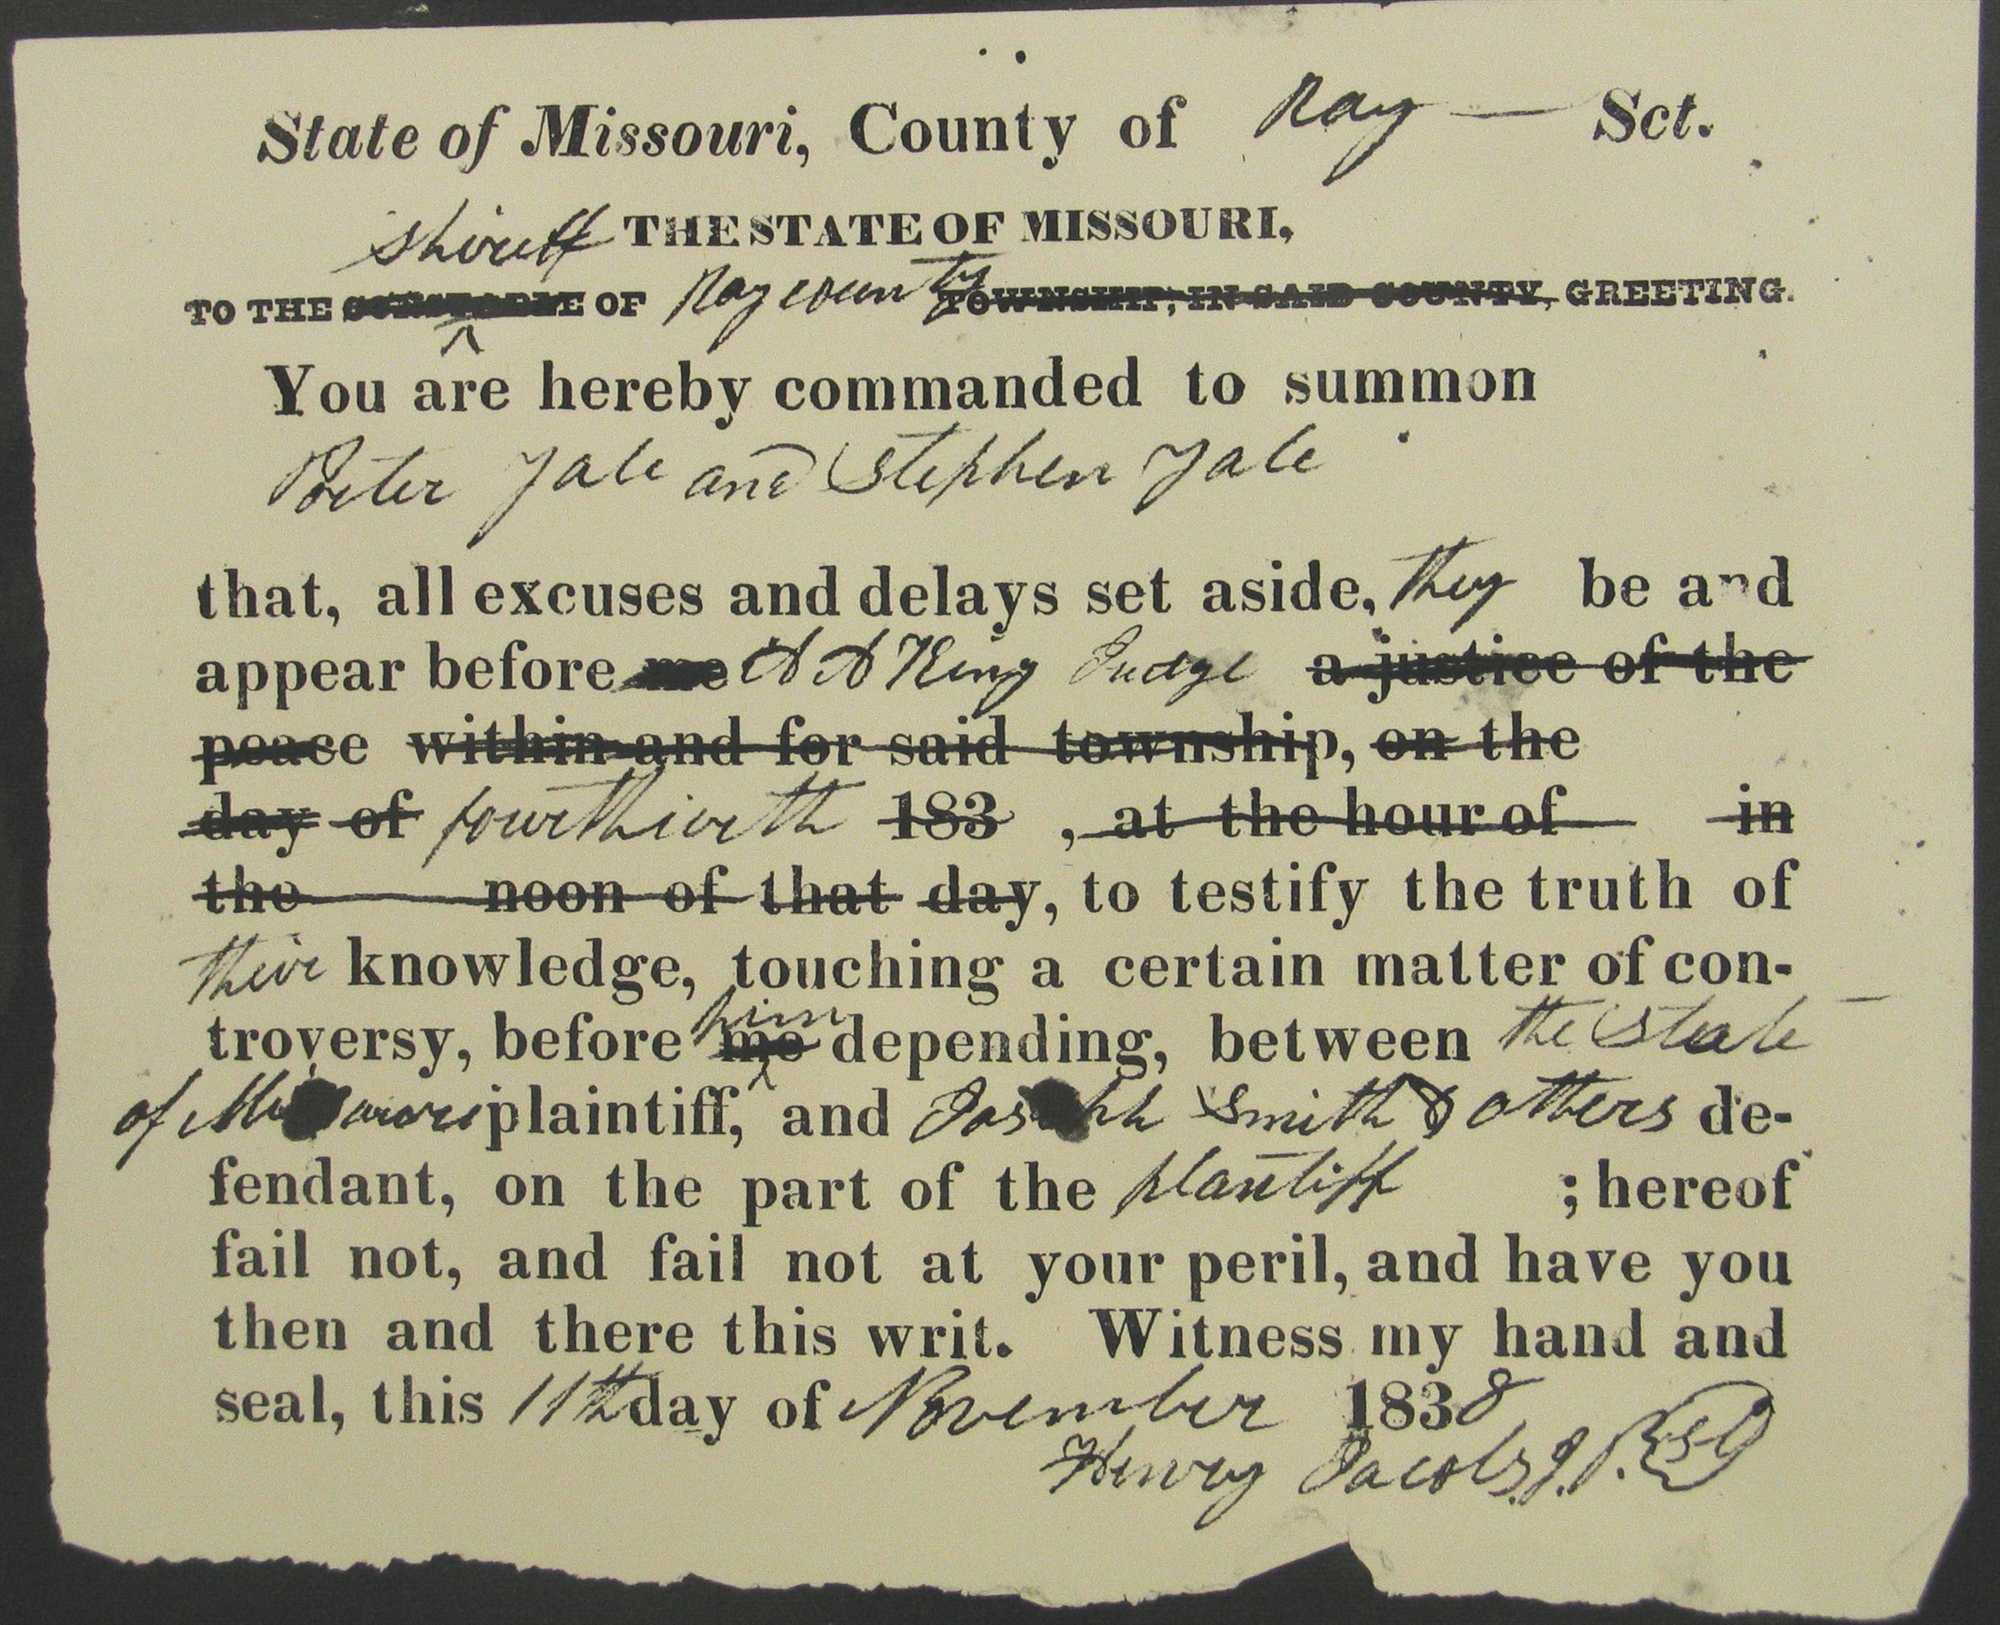 State of Missouri, County of Ray — Sct.
Shireff THE STATE OF MISSOURI,
TO THE CONSTABLE OF Ray county TOWNSHIP, IN SAID COUNTY, GREETING.
You are hereby commanded to summon
Porter Yale and Stephen Yale
that, all excuses and delays set aside, they be and
appear before me A A King Judge a justice of the
peace within and for said township, on the
day of fourthwith 183 , at the hour of in
the noon of that day, to testify the truth of
their knowledge, touching a certain matter of con-
troversy, before me him depending, between the State
of Missouri plaintiff, and Joseph Smith & others de-
fendant, on the part of the plantiff ; hereof
fail not, and fail not at your peril, and have you
then and there this writ. Witness my hand and
seal, this 11th day of November 1838
Henry Jacobs, J. P.